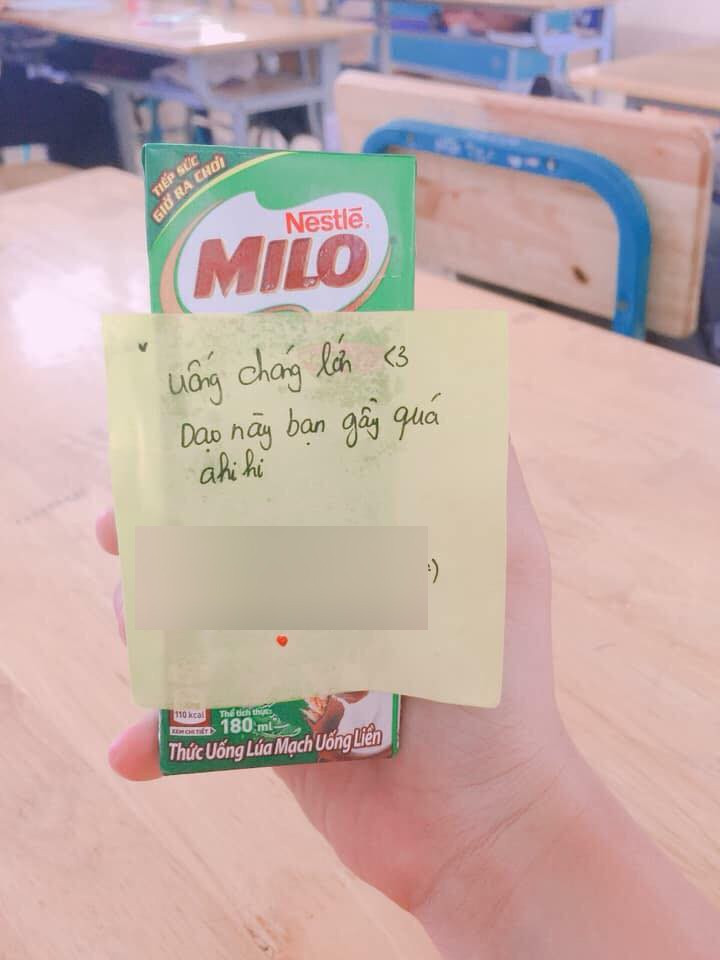 TIẾP SỨC
GIỜ RA CHƠI
Nestlé.
MILO
uống chóng lớn <3
Dạo này bạn gầy quá
ahihi
110 kcal
XEM CHI TIẾT
Thể tích thực:
180 ml
Thức Uống Lúa Mạch Uống Liền